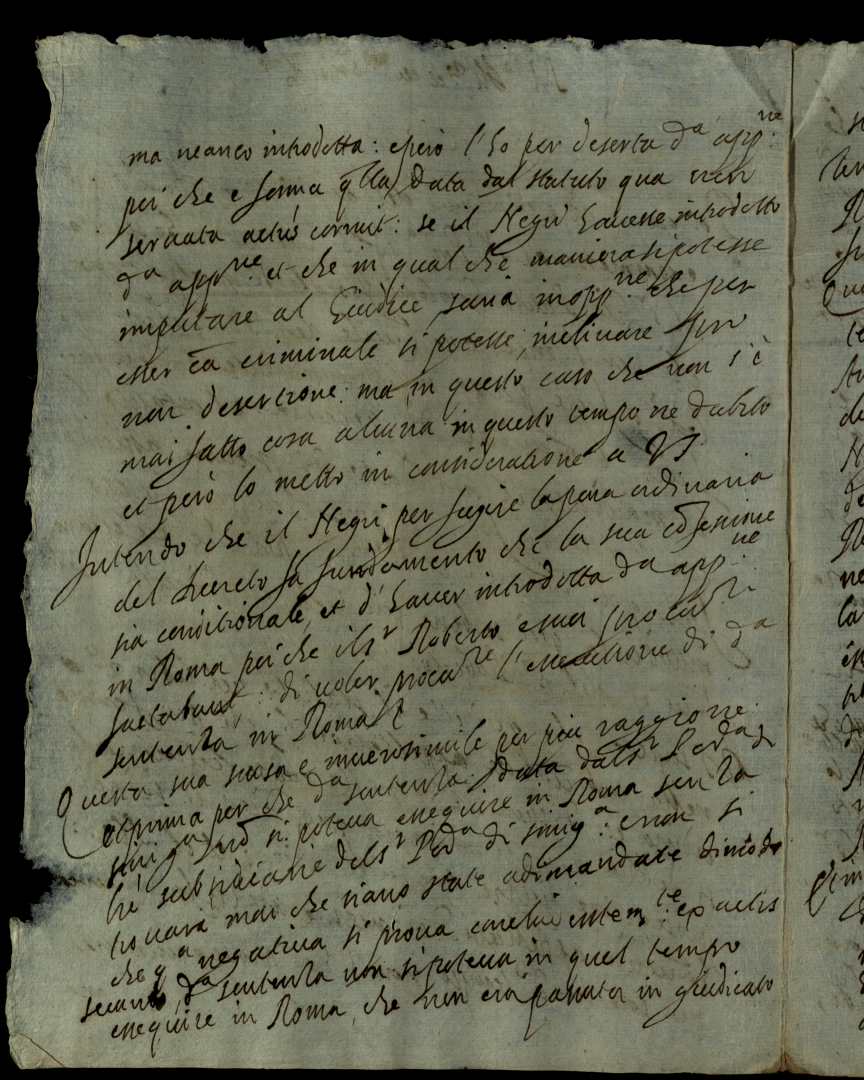 ma neanco introdotta: eperò l'ho per deserta da appne:
poi che e forma qlla data dal statuto qua non
seruata actus corruit: se il Negri hauesse introdotto
da appne et che in qual che maniera si potesse
imputare al Giudice saria in oppne: che per
esser ca criminale si potesse inclinare pro
non desertione: ma in questo caso che non s'è
mai fatto cosa alcuna in questo tempo ne dubito
et però lo metto in consideratione a VS
Intendo che il Negri per fugire la pena ordinaria
del decreto fa fundamento che la sua
sia conditionale, et d'hauer introdotta da appne
in Roma poi che il Sr Roberto e suoi
: di voler procure l'essecutione di da
sentenza in Roma
Questa sua scusa e inuerosimile per più raggione:
et prima per che da sentenza data dal Sr
sinigа non si poteua esseguire in Roma senza
subsidiarie del Sr di sinigа: e non si
trouarà mai che siano state adimandate di modo
che qa negatiua si proua ex actis
secundo, da sentenza non si poteua in quel tempo
esseguire in Roma, che non era passata in giudicato